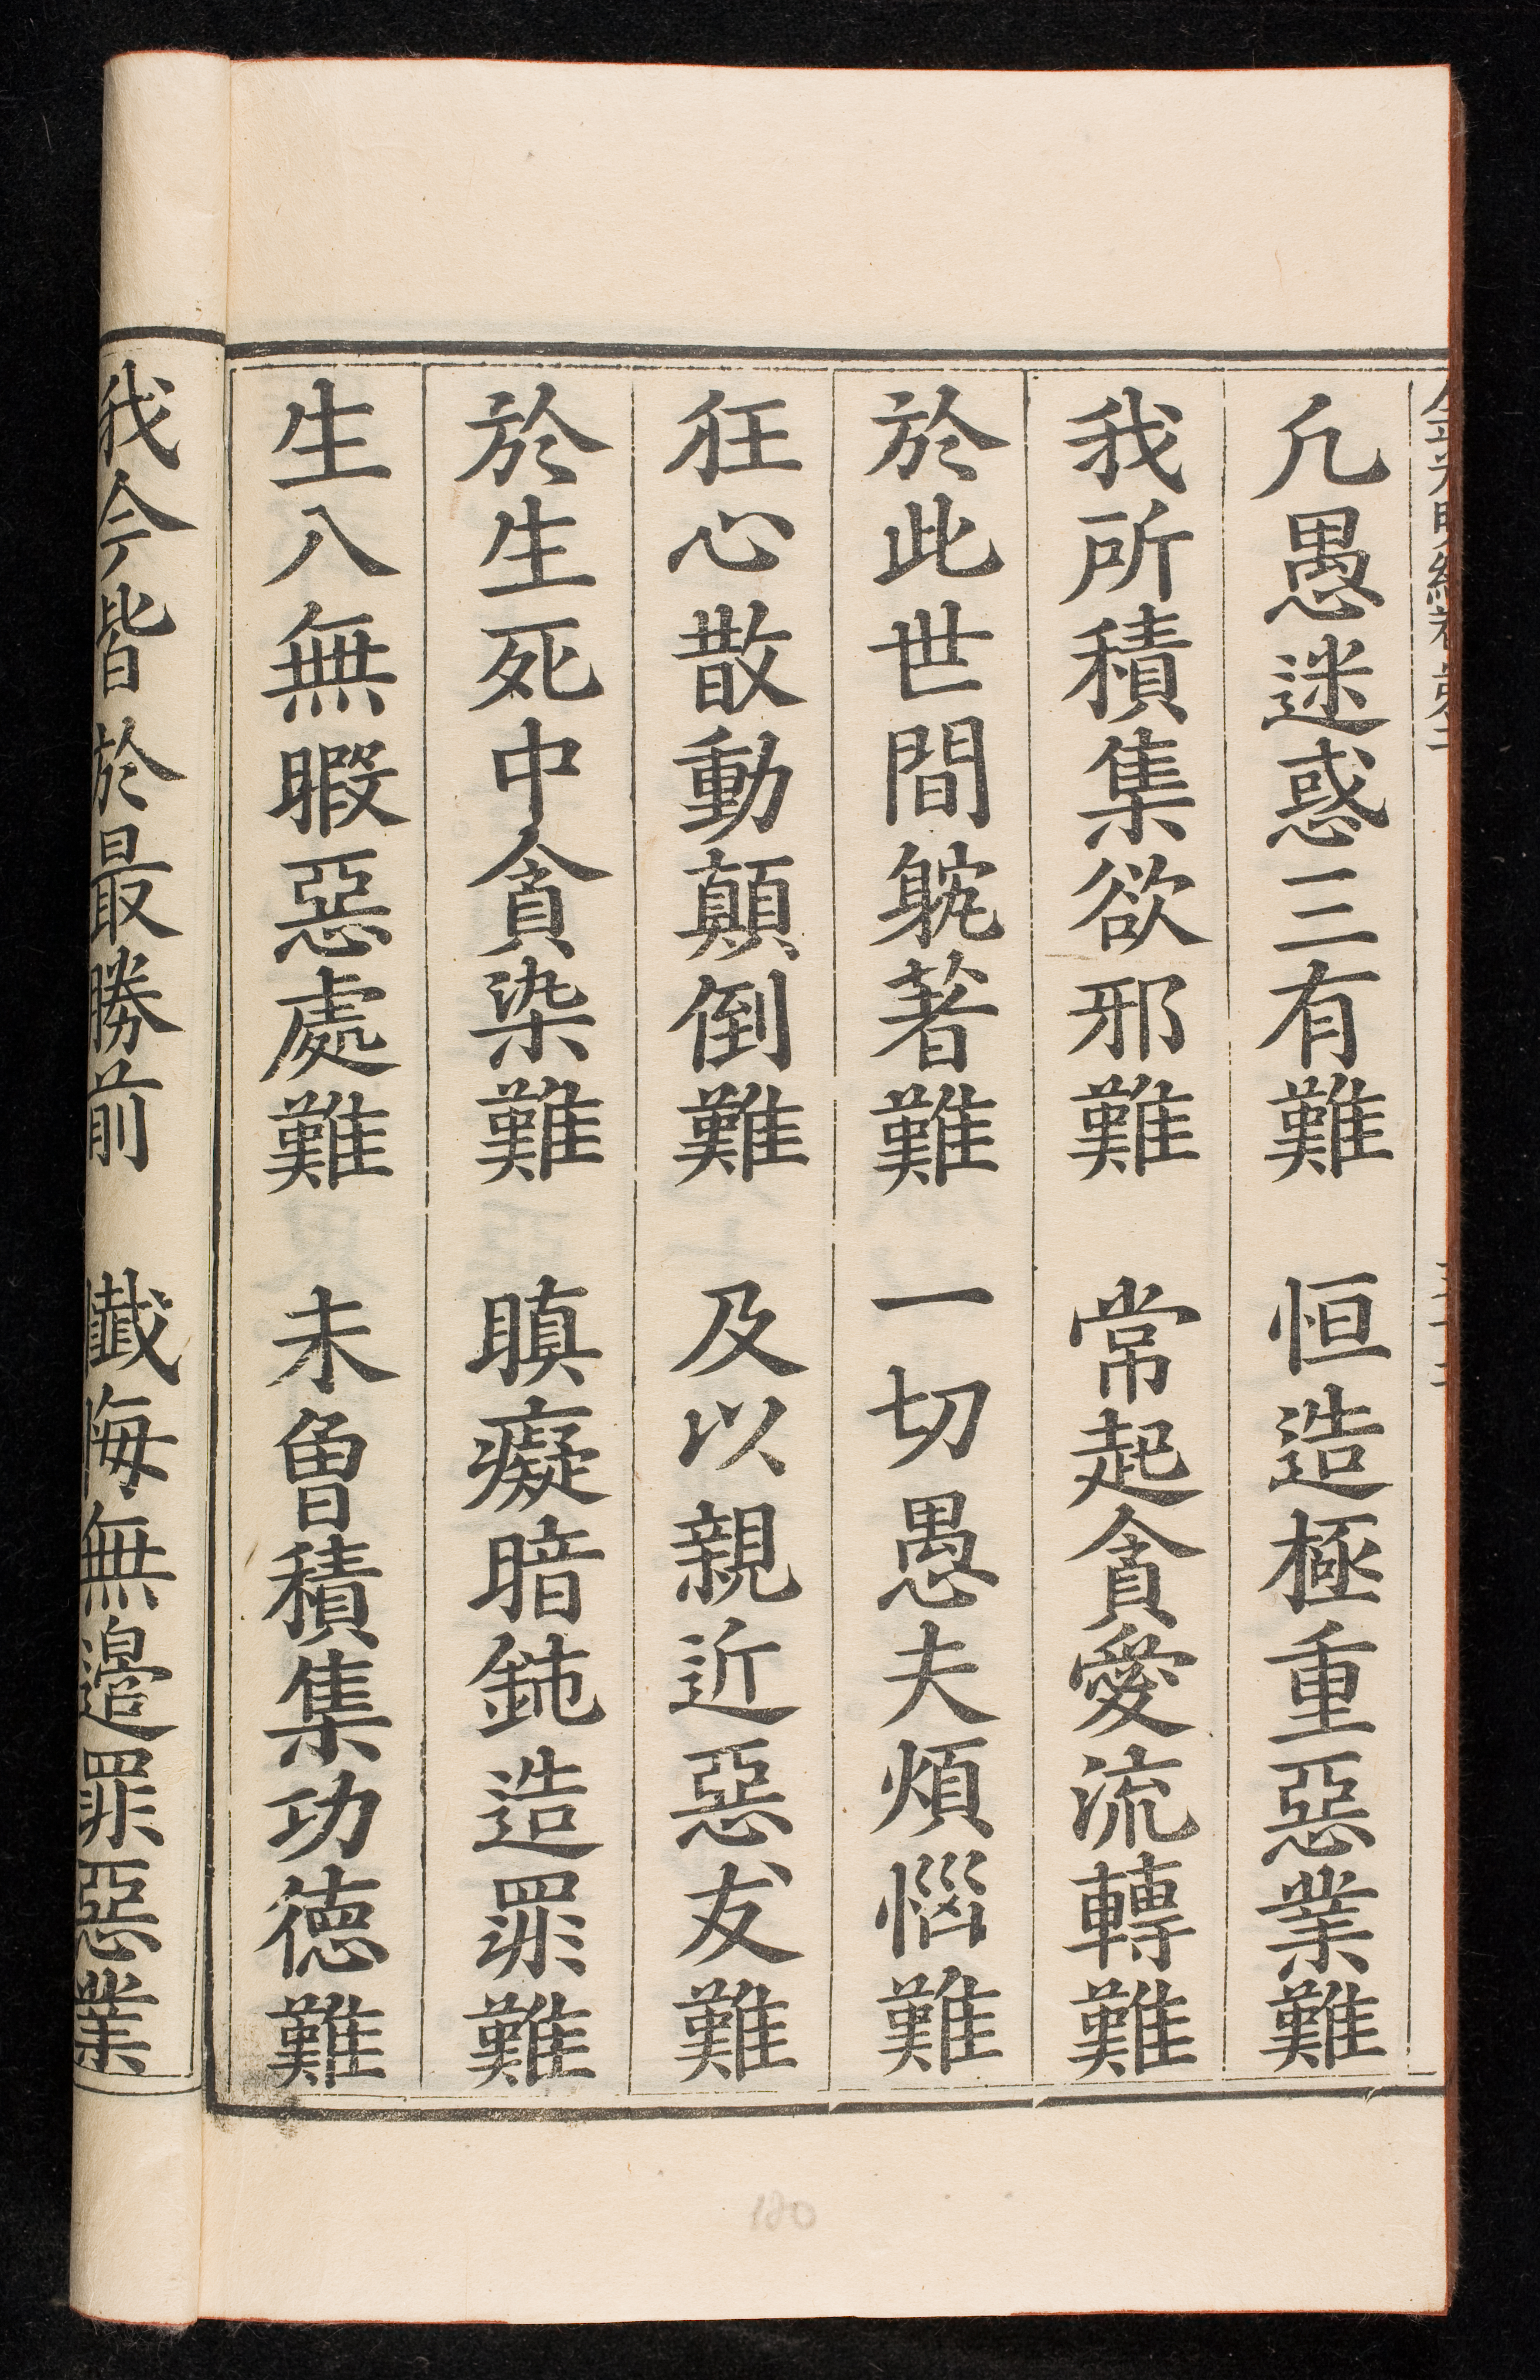 凡愚迷惑三有難　恒造極重惡業難
我所積集欲邪難　常起貪愛流轉難
於此世間躭著難　一切愚夫煩惱難
狂心散動顛倒難　及以親近惡友難
於生死中貪染難　瞋癡暗鈍造罪難
生八無暇惡處難　未曾積集功德難
我今皆於最勝前　懺悔無邊罪惡業
180